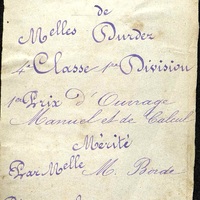 de
Melles Durder
4e Classe 1re Division
1er Prix d'Ouvrage
Manuel et de Calcul
Mérité
Par Melle M. Borde